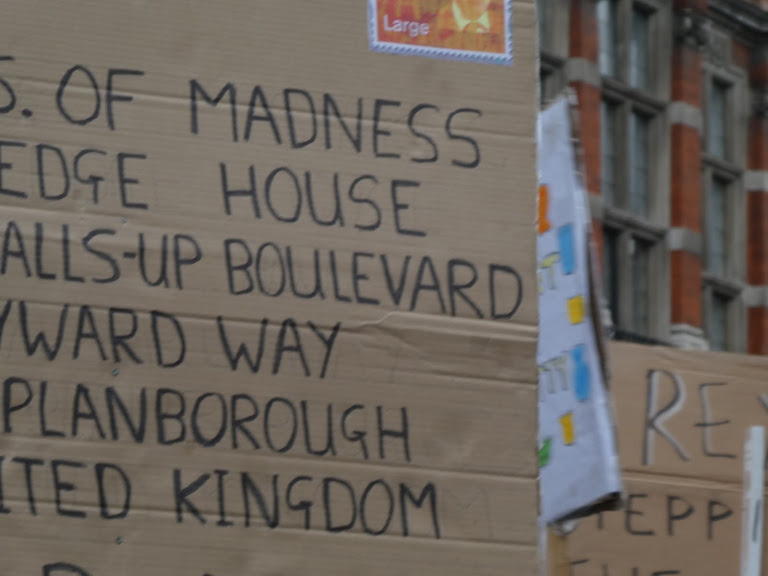 Large
S. OF MADNESS
EDGE HOUSE
ALLS-UP BOULEVARD
YWARD WAY
PLANBOROUGH
ITED KINGDOM
RE
TEPP